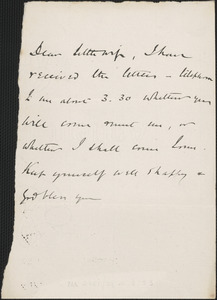 Dear little wife, I have
received the letters – telephone
to me about 3.30 whether you
will come meet me, or
whether I shall come home.
Keep yourself well & happy &
God bless you